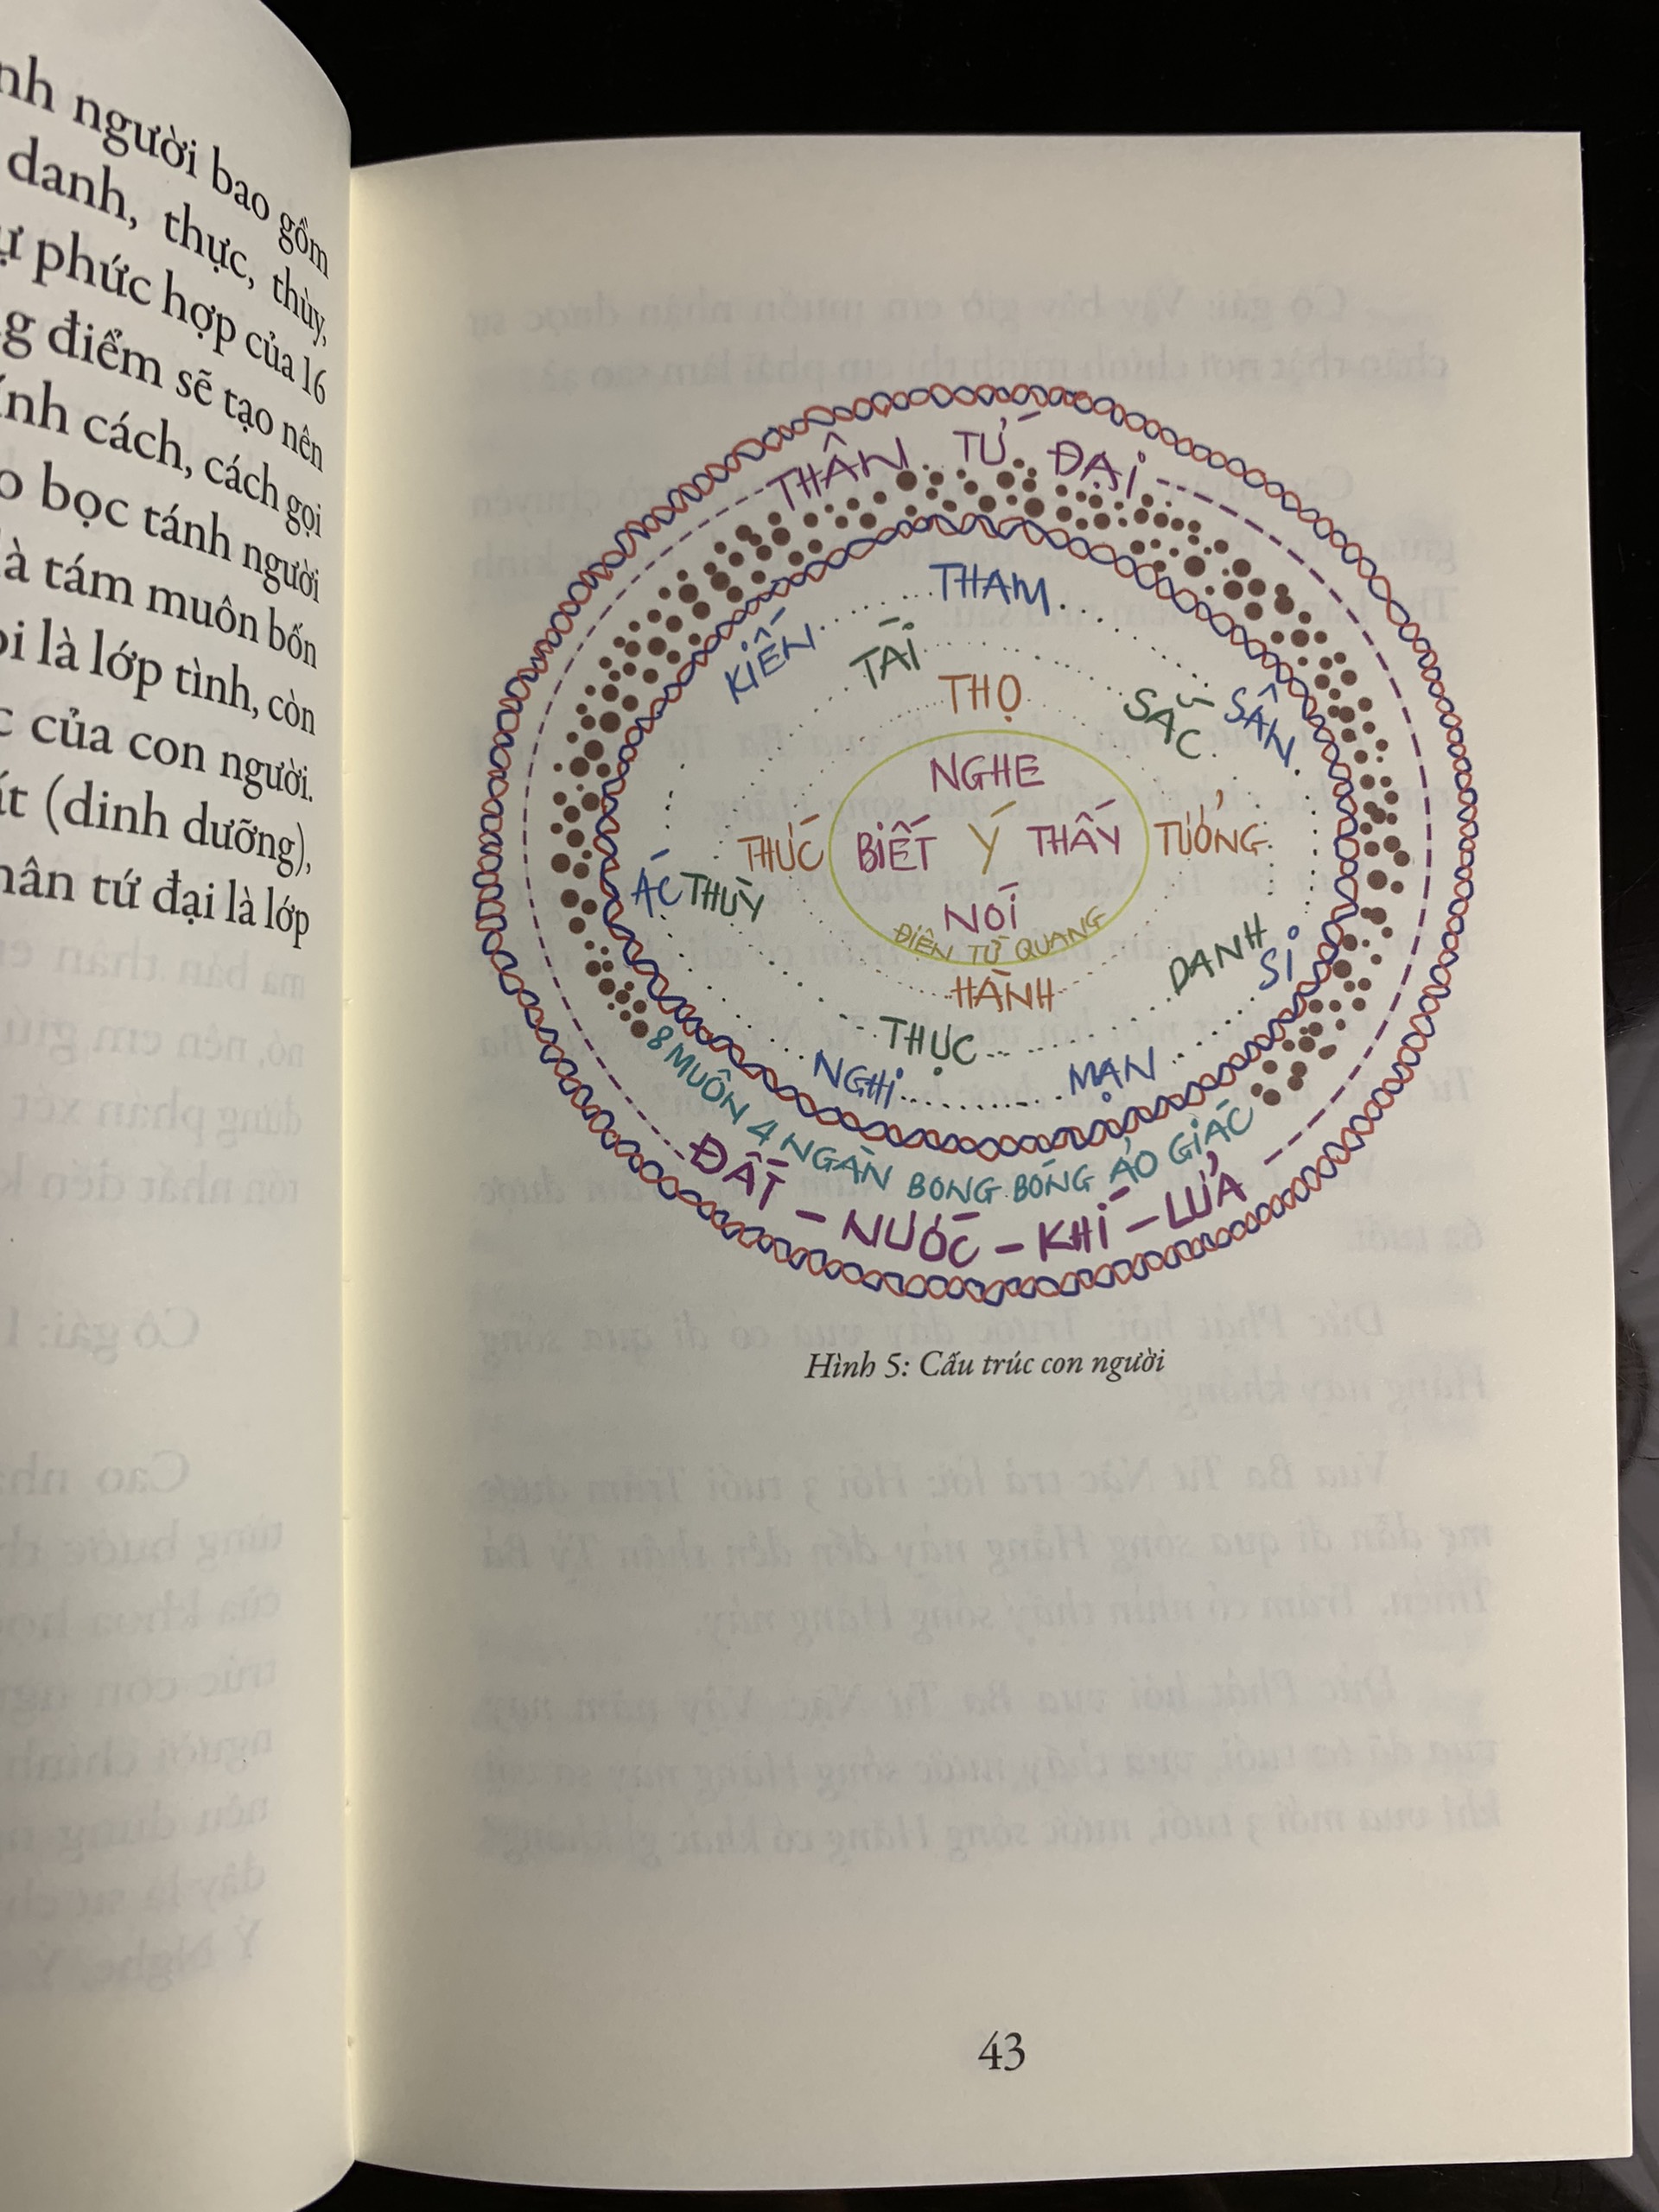 nh người bao gồm
danh, thực, thùy,
ự phức hợp của 16
g điểm sẽ tạo nên
ính cách, cách gọi
o bọc tánh người
là tám muôn bốn
ọi là lớp tình, còn
c của con người.
ất (dinh dưỡng),
hân tứ đại là lớp
THÂN TỨ ĐẠI
THAM
KIẾN
TÀI
THỌ
SẮC
SÂN
NGHE
THỨC BIẾT Ý THẤY TƯỞNG
ÁC THÙY
NÓI
ĐIỆN TỪ QUANG
DANH
SI
HÀNH
THỰC
NGHI
MẠN
8 MUÔN 4 NGÀN BONG BÓNG ẢO GIÁC
ĐẤT - NƯỚC - KHÍ - LỬA
Hình 5: Cấu trúc con người
43